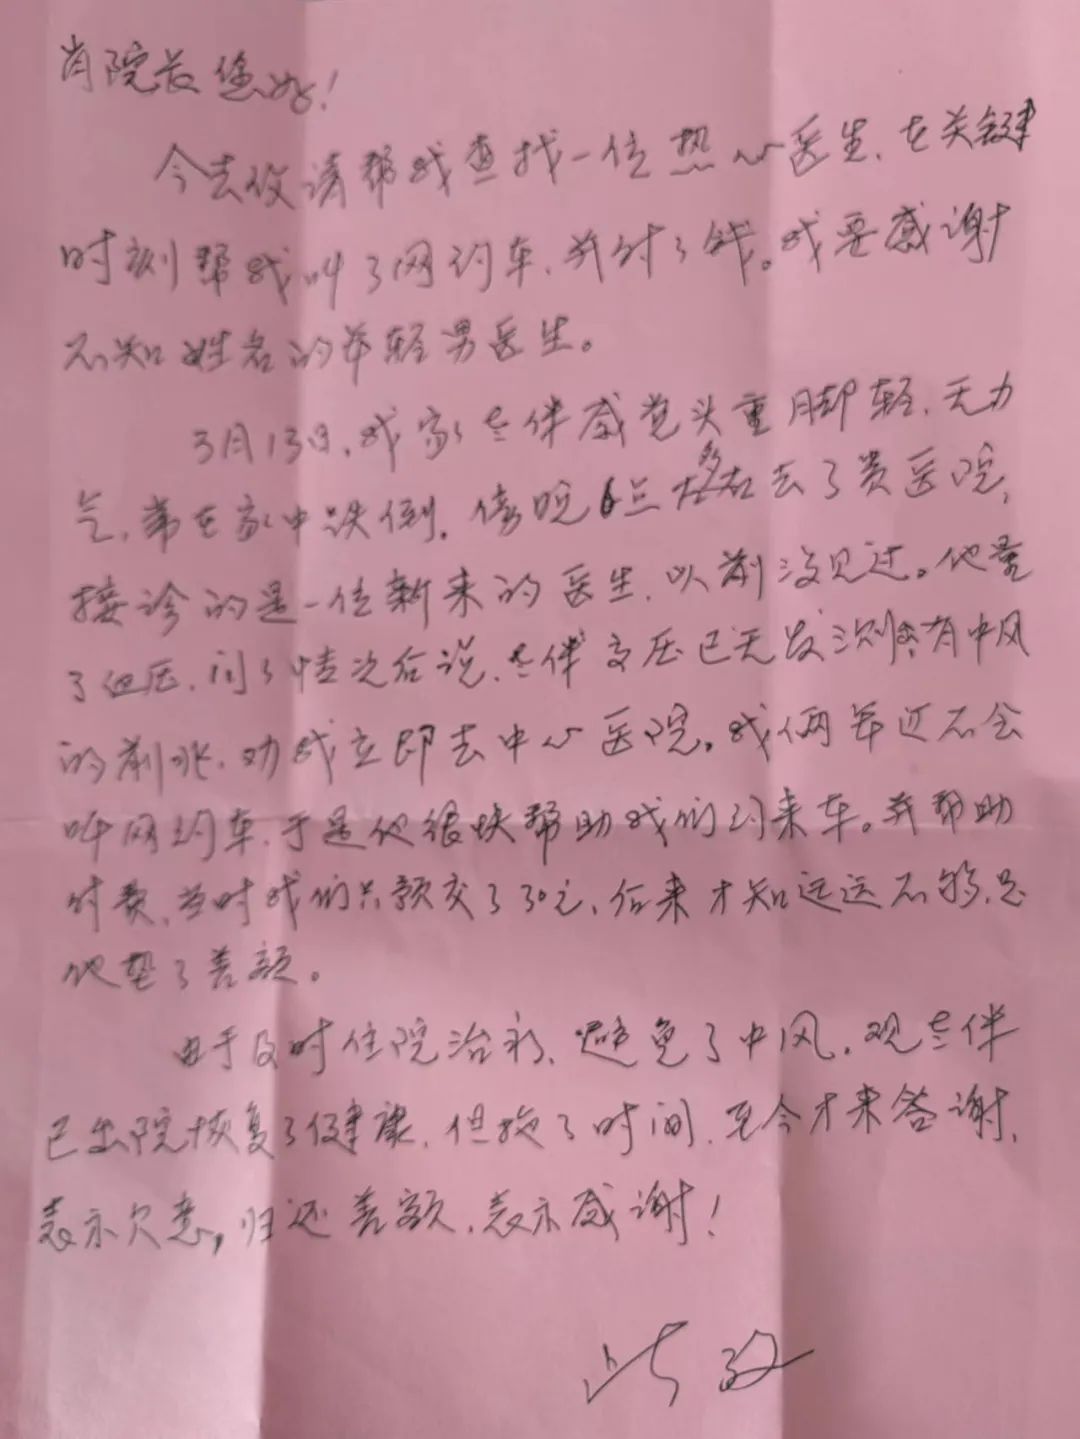 肖院长您好!
今去信请帮我查找一位热心医生,在关键
时刻帮我叫了网约车,并付了钱。我要感谢
不知姓名的年轻男医生。
3月13日,我家老伴感觉头重脚轻,无力
气,常在家中跌倒,傍晚6点多左右去了贵医院,
接诊的是一位新来的医生,以前没见过。他量
了血压,问了情况后说,老伴高压已无发测,有中风
的前兆,劝我立即去中心医院。我俩年迈不会
叫网约车,于是他很快帮助我们约来车。并帮助
付费,当时我们只预交了30元,后来才知远远不够,是
他垫了差额。
由于及时住院治疗,避免了中风,现老伴
已出院恢复了健康,但拖了时间,至今才来答谢,
表示欠意,归还差额,表示感谢!
此致